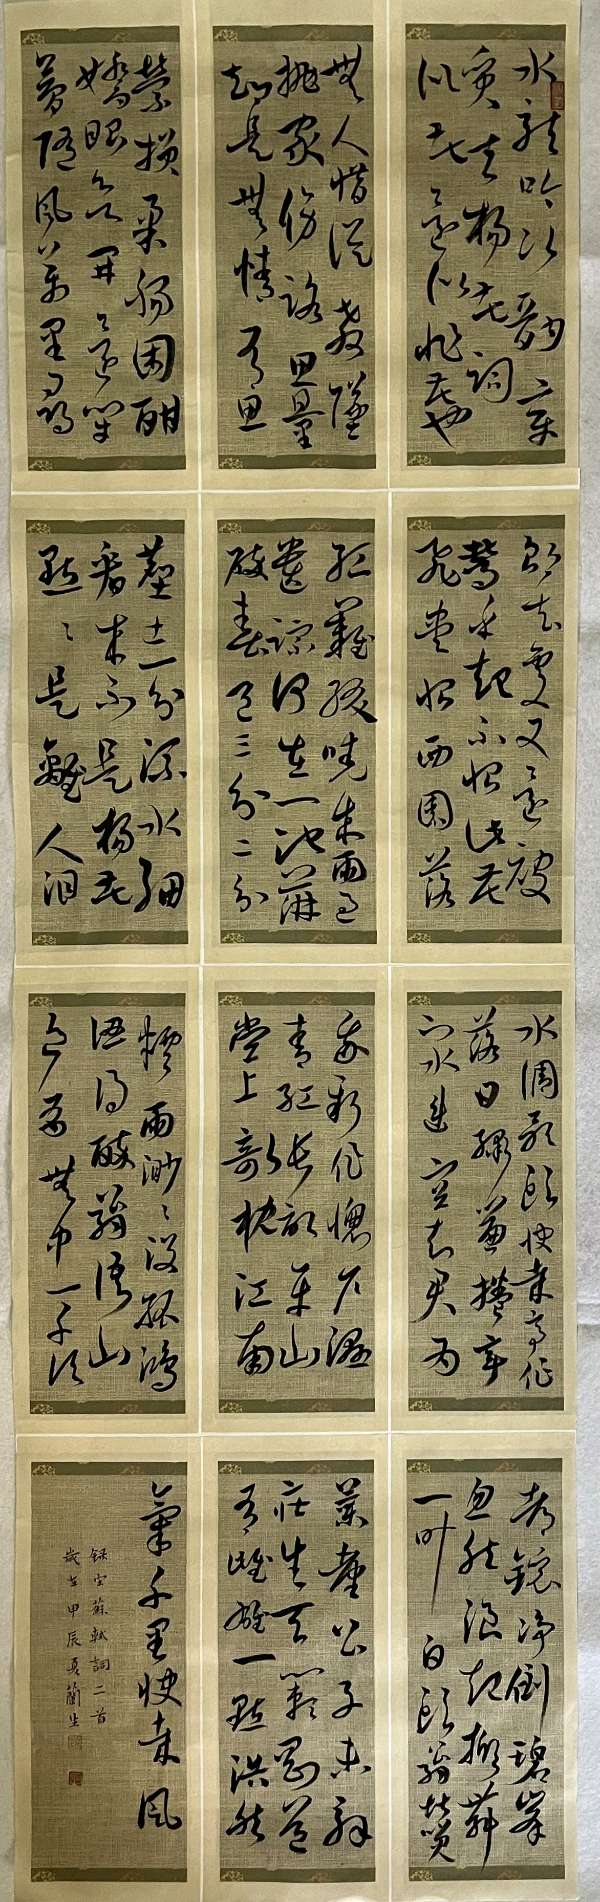 水龍吟次韻章
質夫楊花詞
似花還似非花也
無人惜從教墜
拋家傍路思量
卻是無情有思
縈損柔腸困酣
嬌眼欲開還閉
夢隨風萬里尋
郎去處又還被
鶯呼起不恨此花
飛盡恨西園落
紅難綴曉來雨過
遺蹤何在一池萍
碎春色三分二分
塵土一分流水細
看來不是楊花
點〻是離人泪
水調歌頭快哉亭作
落日繡簾捲亭
下水連空知君為
我新作窗戶濕
青紅長記平山
堂上欹枕江南
煙雨渺〻沒孤鴻
認得醉翁語山
色有無中一千頃
都鏡淨倒碧峯
忽然浪起掀舞
一叶白頭翁堪笑
蘭臺公子未解
莊生天籟剛道
有雌雄一點浩然
氣千里快哉風
錄宋蘇軾詞二首
歲在甲辰夏蘭生